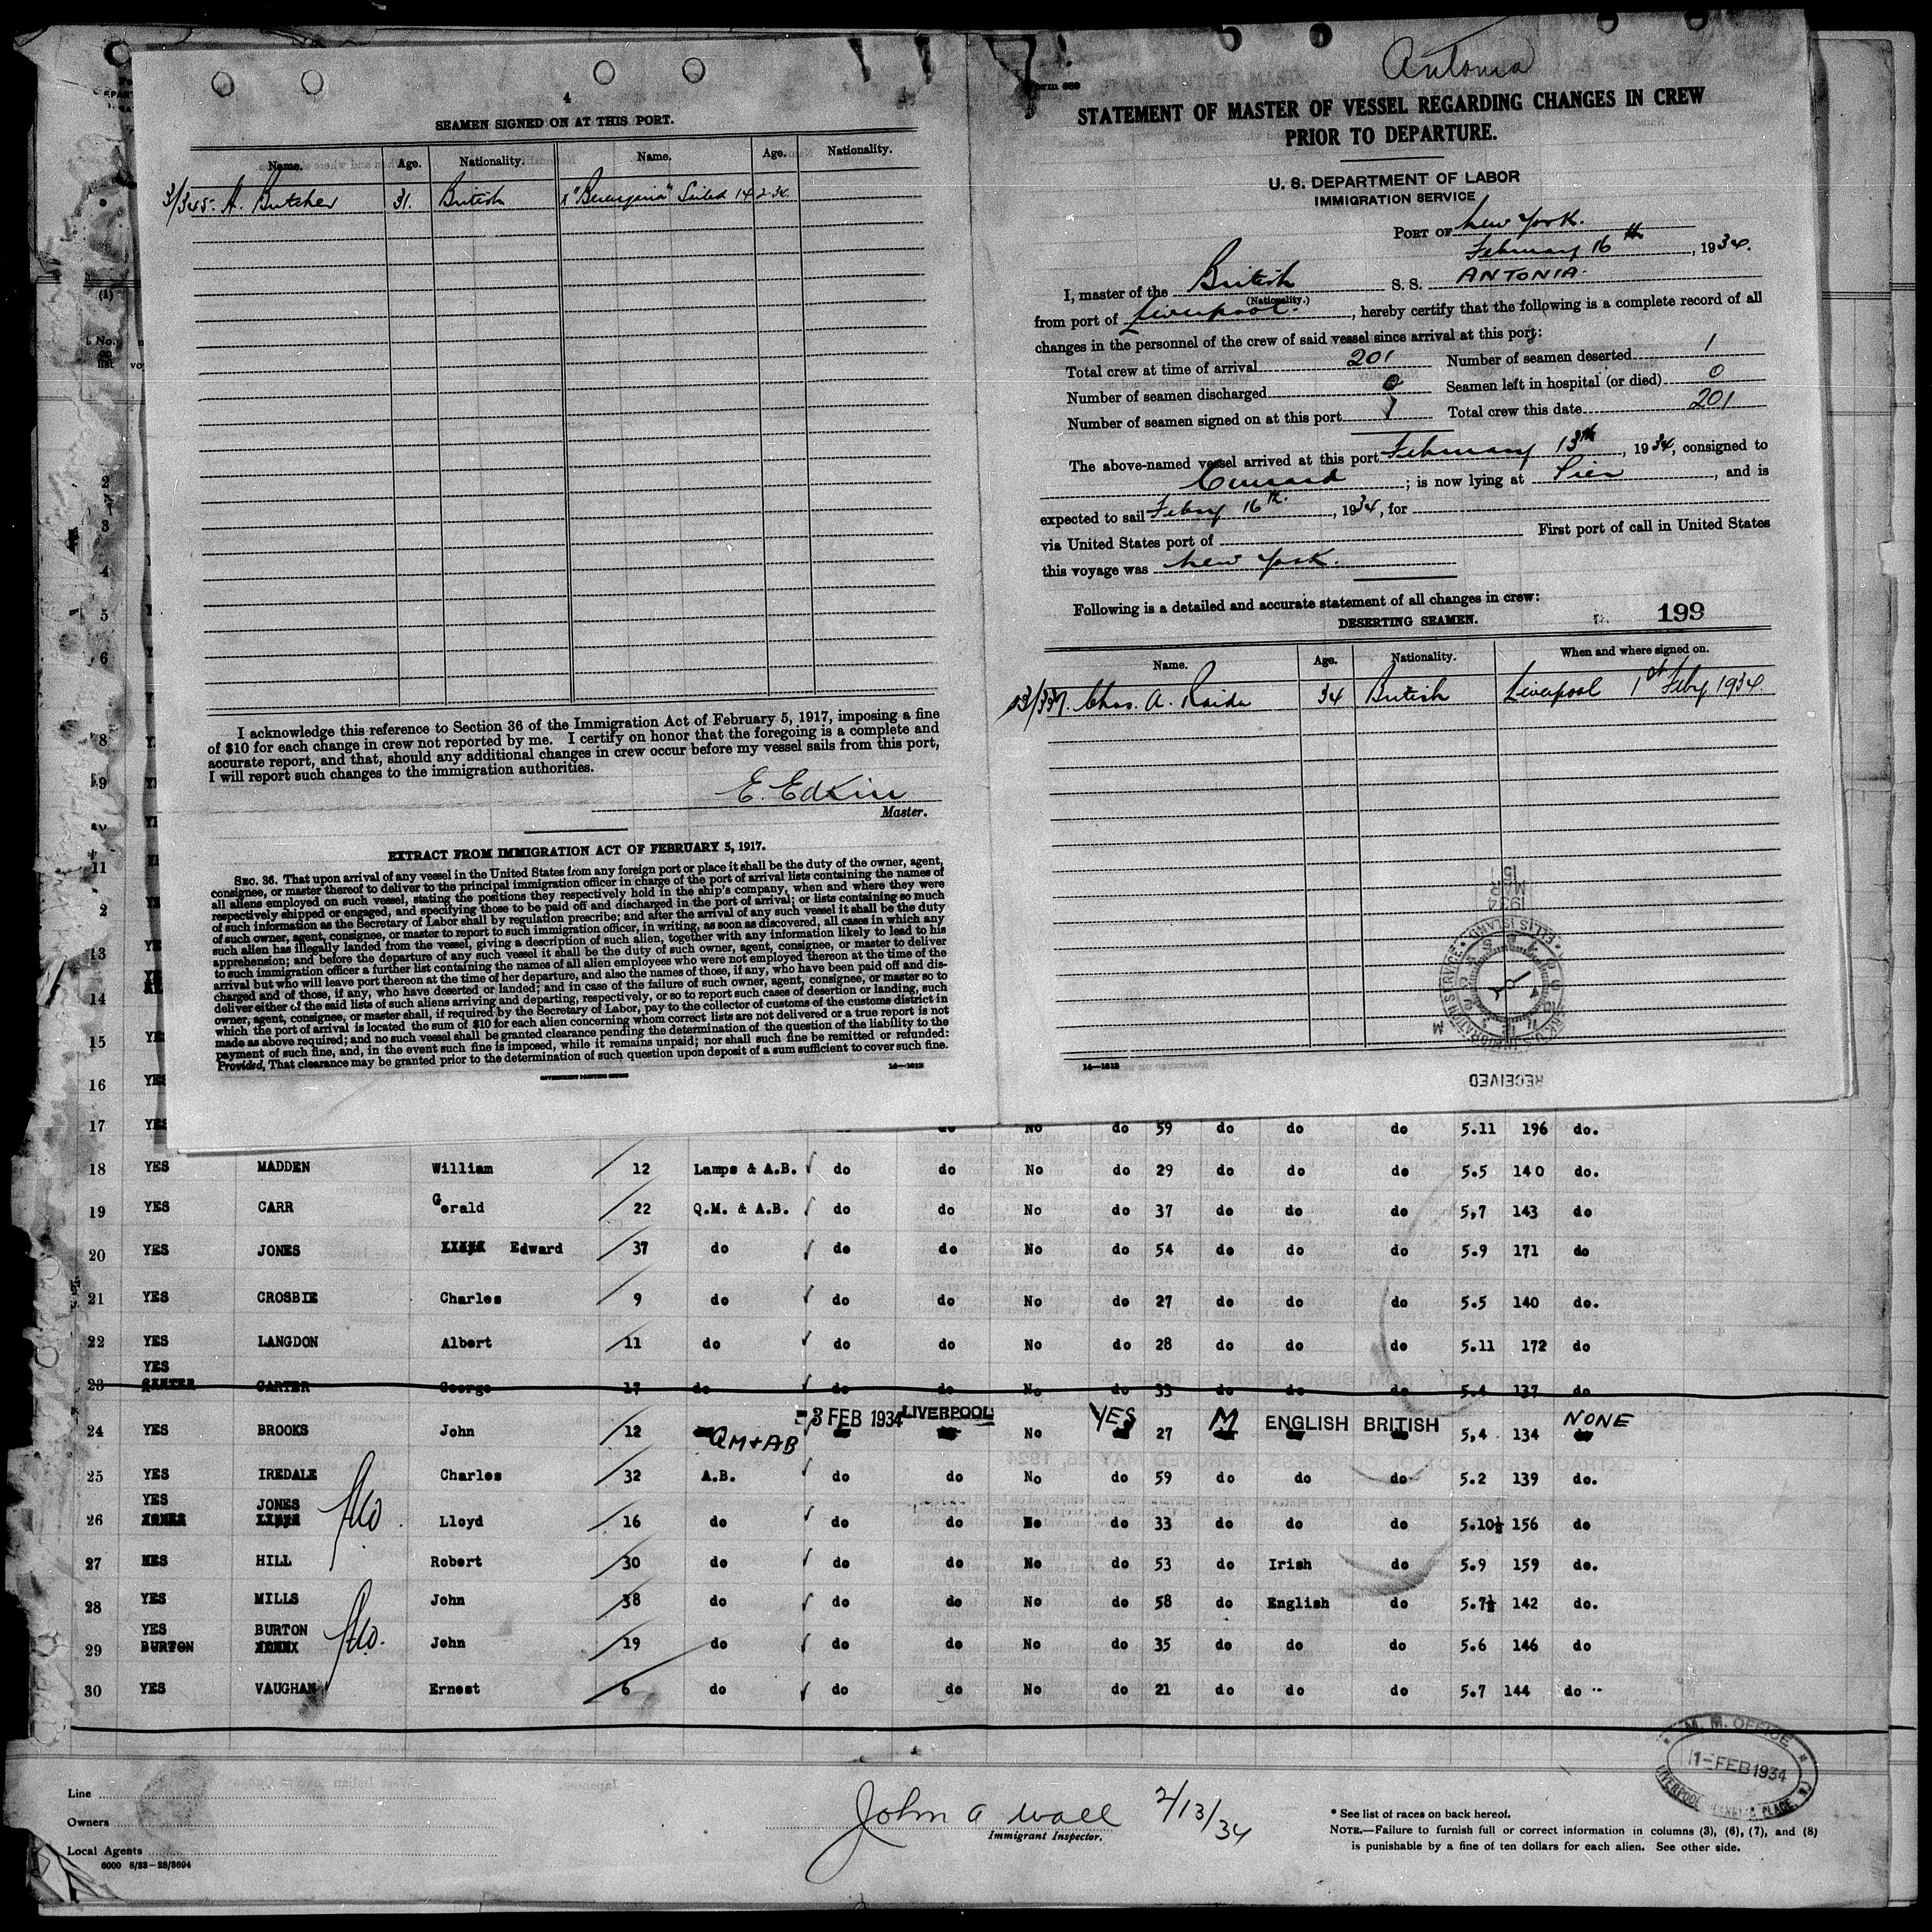 4
SEAMEN SIGNED ON AT THIS PORT.
Name. Age. Nationality. Name. Age. Nationality.
3/345. A. Butcher 31. British "Berengaria" Sailed 14-2-34
I acknowledge this reference to Section 36 of the Immigration Act of February 5, 1917, imposing a fine
of $10 for each change in crew not reported by me. I certify on honor that the foregoing is a complete and
accurate report, and that, should any additional changes in crew occur before my vessel sails from this port,
I will report such changes to the immigration authorities.
E. Edkin
Master.
EXTRACT FROM IMMIGRATION ACT OF FEBRUARY 5, 1917.
SEC. 36. That upon arrival of any vessel in the United States from any foreign port or place it shall be the duty of the owner, agent,
consignee, or master thereof to deliver to the principal immigration officer in charge of the port of arrival lists containing the names of
all aliens employed on such vessel, stating the positions they respectively hold in the ship's company, when and where they were
respectively shipped or engaged, and specifying those to be paid off and discharged in the port of arrival; or lists containing so much
of such information as the Secretary of Labor shall by regulation prescribe; and after the arrival of any such vessel it shall be the duty
of such owner, agent, consignee, or master to report to such immigration officer, in writing, as soon as discovered, all cases in which any
such alien has illegally landed from the vessel, giving a description of such alien, together with any information likely to lead to his
apprehension; and before the departure of any such vessel it shall be the duty of such owner, agent, consignee, or master to deliver
to such immigration officer a further list containing the names of all alien employees who were not employed thereon at the time of the
arrival but who will leave port thereon at the time of her departure, and also the names of those, if any, who have been paid off and dis-
charged and of those, if any, who have deserted or landed; and in case of the failure of such owner, agent, consignee, or master so to
deliver either of the said lists of such aliens arriving and departing, respectively, or so to report such cases of desertion or landing, such
owner, agent, consignee, or master shall, if required by the Secretary of Labor, pay to the collector of customs of the customs district in
which the port of arrival is located the sum of $10 for each alien concerning whom correct lists are not delivered or a true report is not
made as above required; and no such vessel shall be granted clearance pending the determination of the question of the liability to the
payment of such fine, and, in the event such fine is imposed, while it remains unpaid; nor shall such fine be remitted or refunded:
Provided, That clearance may be granted prior to the determination of such question upon deposit of a sum sufficient to cover such fine.
GOVERNMENT PRINTING OFFICE 14—1613
Antonia
STATEMENT OF MASTER OF VESSEL REGARDING CHANGES IN CREW
PRIOR TO DEPARTURE.
U. S. DEPARTMENT OF LABOR
IMMIGRATION SERVICE
PORT OF New York.
February 16th, 1934.
I, master of the British S. S. ANTONIA.
(Nationality.)
from port of Liverpool., hereby certify that the following is a complete record of all
changes in the personnel of the crew of said vessel since arrival at this port:
Total crew at time of arrival 201 Number of seamen deserted 1
Number of seamen discharged 0 Seamen left in hospital (or died) 0
Number of seamen signed on at this port 1 Total crew this date 201
The above-named vessel arrived at this port February 13th, 1934, consigned to
Cunard; is now lying at Pier, and is
expected to sail Feby 16th., 1934, for
via United States port of First port of call in United States
this voyage was New York.
Following is a detailed and accurate statement of all changes in crew:
199
DESERTING SEAMEN.
Name. Age. Nationality. When and where signed on.
Chas. A. 34 British Liverpool 1st Feby 1934.
1934
MAR
15
ELLIS ISLAND
14—1613
RECEIVED
17 YES do No do 59 do do do 5.11 196 do.
18 YES MADDEN William 12 Lamps & A.B. do do No do 29 do do do 5.5 140 do.
19 YES CARR Gerald 22 Q.M. & A.B. do do No do 37 do do do 5,7 143 do
20 YES JONES Edward 37 do do do No do 54 do do do 5.9 171 do
21 YES CROSBIE Charles 9 do do do No do 27 do do do 5.5 140 do.
22 YES LANGDON Albert 11 do do do No do 28 do do do 5.11 172 do
YES
23 CARTER George 17 do do do No do 33 do do do 5.4 137 do
24 YES BROOKS John 12 QM+AB -3 FEB 1934 LIVERPOOL No YES 27 M ENGLISH BRITISH 5,4 134 NONE
25 YES IREDALE Charles 32 A.B. do do No do 59 do do do 5.2 139 do.
26 YES JONES Lloyd 16 do do do No do 33 do do do 5.10½ 156 do
27 HILL Robert 30 do do do No do 53 do Irish do 5.9 159 do.
28 YES MILLS John 38 do do do No do 58 do English do 5.7½ 142 do.
YES BURTON
29 BURTON John 19 do do do No do 35 do do do 5.6 146 do
30 YES VAUGHAN Ernest 6 do do do No do 21 do do do 5.7 144 do
M. M. OFFICE
1-FEB 1934
LIVERPOOL
Line
Owners
Local Agents
6000 8/33—28/3694
John A Wall 2/13/34
Immigrant Inspector.
* See list of races on back hereof.
NOTE.—Failure to furnish full or correct information in columns (3), (6), (7), and (8)
is punishable by a fine of ten dollars for each alien. See other side.